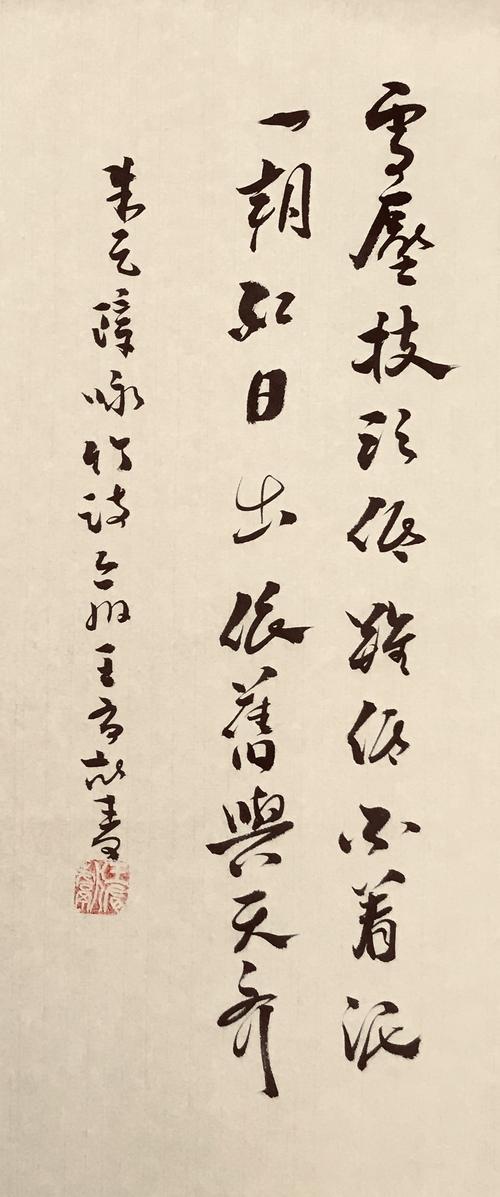 雪壓枝頭低雖低不着泥
一朝紅日出依舊與天齊
朱元璋咏竹詩 王 書